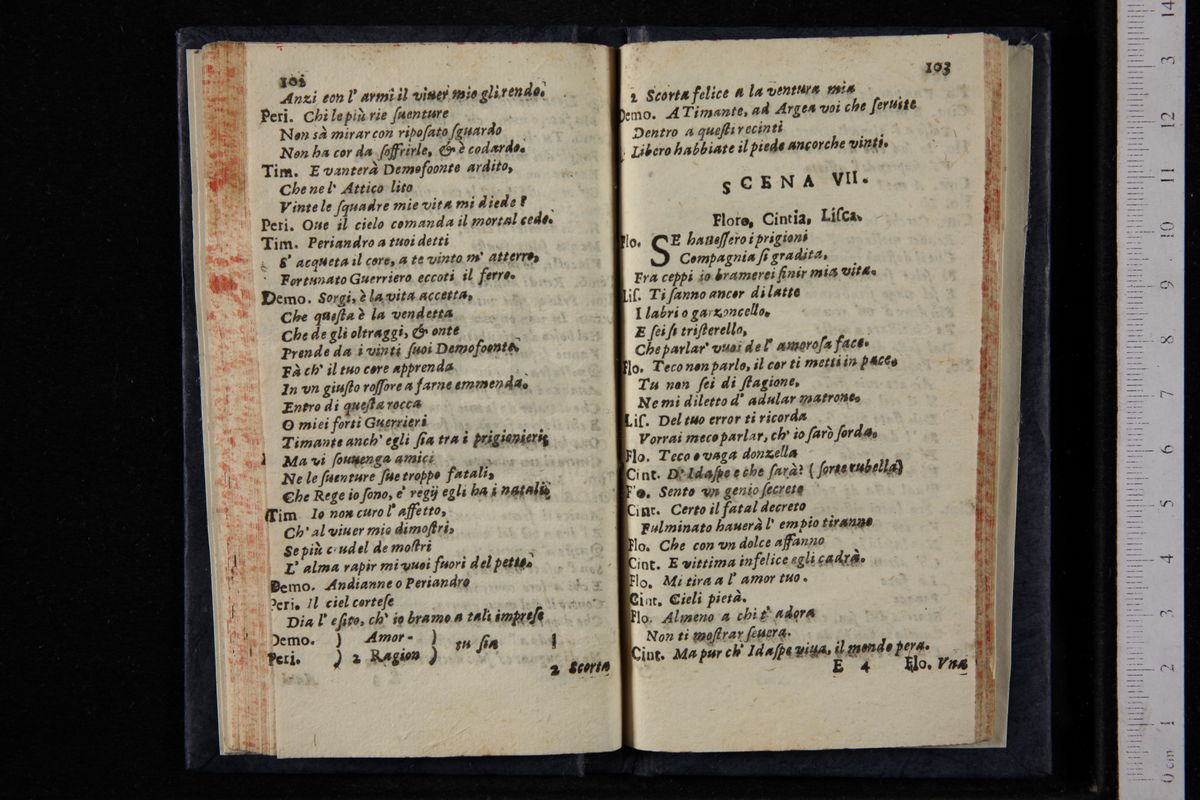 102
Anzi con l' armi il viuer mio gli rendo.
Peri. Chi le più rie ſuenture
Non sà mirar con ripoſato ſguardo
Non ha cor da ſoffrirle, & è codardo.
Tim. E vanterà Demofoonte ardito,
Che ne l' Attico lito
Vinte le ſquadre mie vita mi diede?
Peri. Oue il cielo comanda il mortal cede.
Tim. Periandro a tuoi detti
S' acqueta il core, a te vinto m' atterro,
Fortunato Guerriero eccoti il ferro.
Demo. Sorgi, è la vita accetta,
Che queſta è la vendetta
Che de gli oltraggi, & onte
Prende da i vinti ſuoi Demofoonte.
Fà ch' il tuo core apprenda
In vn giuſto roſſore a farne emmenda.
Entro di queſta rocca
O miei forti Guerrieri
Timante anch' egli ſia tra i prigionieri;
Ma vi ſouuenga amici
Ne le ſuenture ſue troppo fatali,
Che Rege io ſono, e' regij egli ha i natali.
Tim Io non curo l' affetto,
Ch' al viuer mio dimoſtri,
Se più c udel de moſtri
L' alma rapir mi vuoi fuori del petto.
Demo. Andianne o Periandro
Peri. Il ciel corteſe
Dia l' eſito, ch' io bramo a tali impreſe
Demo. ) Amor - ) tu ſia !
Peri. ) 2 Ragion )
2 Scorta
103
2 Scorta felice a la ventura mia
Demo. A Timante, ad Argea voi che ſeruite
Dentro a queſti recinti
Libero habbiate il piede ancorche vinti.
SCENA VII.
Floro, Cintia, Liſca.
Flo. SE haueſſero i prigioni
Compagnia ſi gradita,
Fra ceppi io bramerei finir mia vita.
Liſ. Ti ſanno ancor di latte
I labri o garzoncello,
E ſei ſi triſterello,
Che parlar' vuoi de l' amoroſa face.
Flo. Teco non parlo, il cor ti metti in pace,
Tu non ſei di ſtagione,
Ne mi diletto d' adular matrone.
Liſ. Del tuo error ti ricorda
Vorrai meco parlar, ch' io ſarò ſorda.
Flo. Teco o vaga donzella
Cint. D' Idaſpe e che ſarà? (ſorte rubella)
F'o. Sento vn genio ſecreto
Cint. Certo il fatal decreto
Fulminato hauerà l' empio tiranno
Flo. Che con vn dolce affanno
Cint. E vittima infelice egli cadrà.
Flo. Mi tira a l' amor tuo.
Cint. Cieli pietà.
Flo. Almeno a chi t' adora
Non ti moſtrar ſeuera.
Cint. Ma pur ch' Idaſpe viua, il mondo pera.
E 4 Flo. Vna
0 cm 1 2 3 4 5 6 7 8 9 10 11 12 3 14